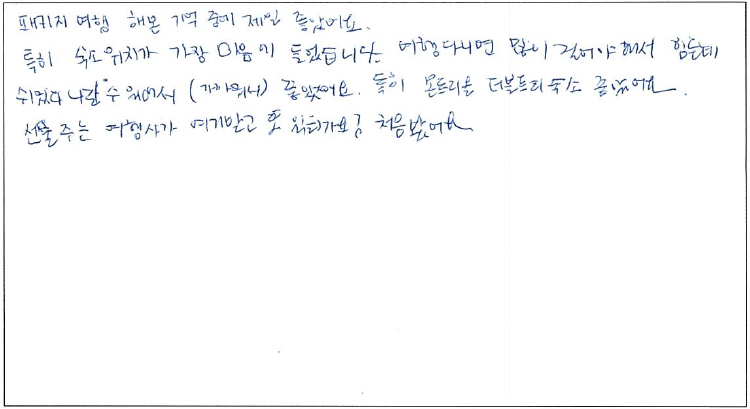 패키지 여행 해본 기억 중에 제일 좋았어요.
특히 숙소위치가 가장 마음에 들었습니다. 여행다니면 많이 걸어야 해서 힘든데
쉬었다 나갈 수 있어서 (가까워서) 좋았어요. 특히 몬트리올 더블트리 숙소 좋았어요.
선물주는 여행사가 여기말고 또 있을까요? 처음봤어요